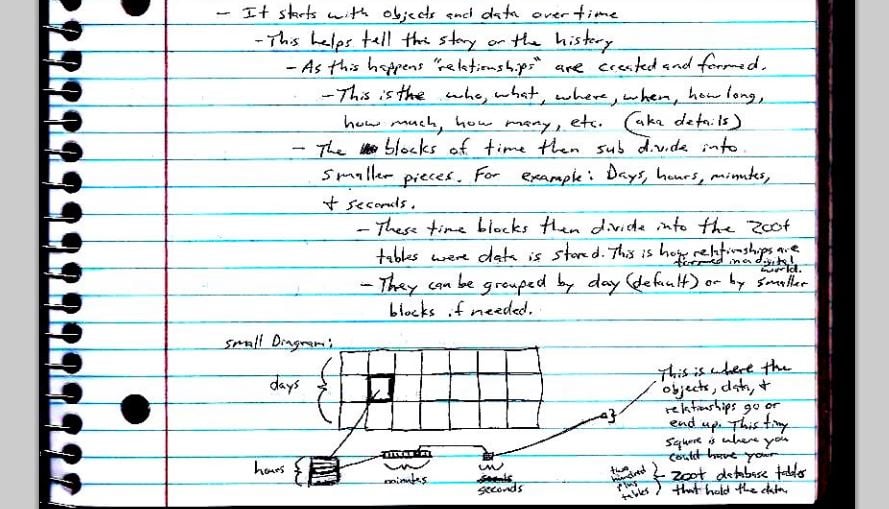 - It starts with objects and data over time
- This helps tell the story or the history
- As this happens "relationships" are created and formed.
- This is the who, what, where, when, how long,
how much, how many, etc. (aka details)
- The blocks of time then sub divide into
smaller pieces. For example: Days, hours, minutes,
+ seconds.
- These time blocks then divide into the zoot
tables were data is stored. This is how reltionships are
formed in a digital
world.
- They can be grouped by day (default) or by smaller
blocks if needed.
small Diagram:
days
This is where the
objects, data, +
relationships go or
end up. This tiny
square is where you
could have your
zoot database tables
that hold the data
two
hundred
plus
tables
hours
minutes
seconds